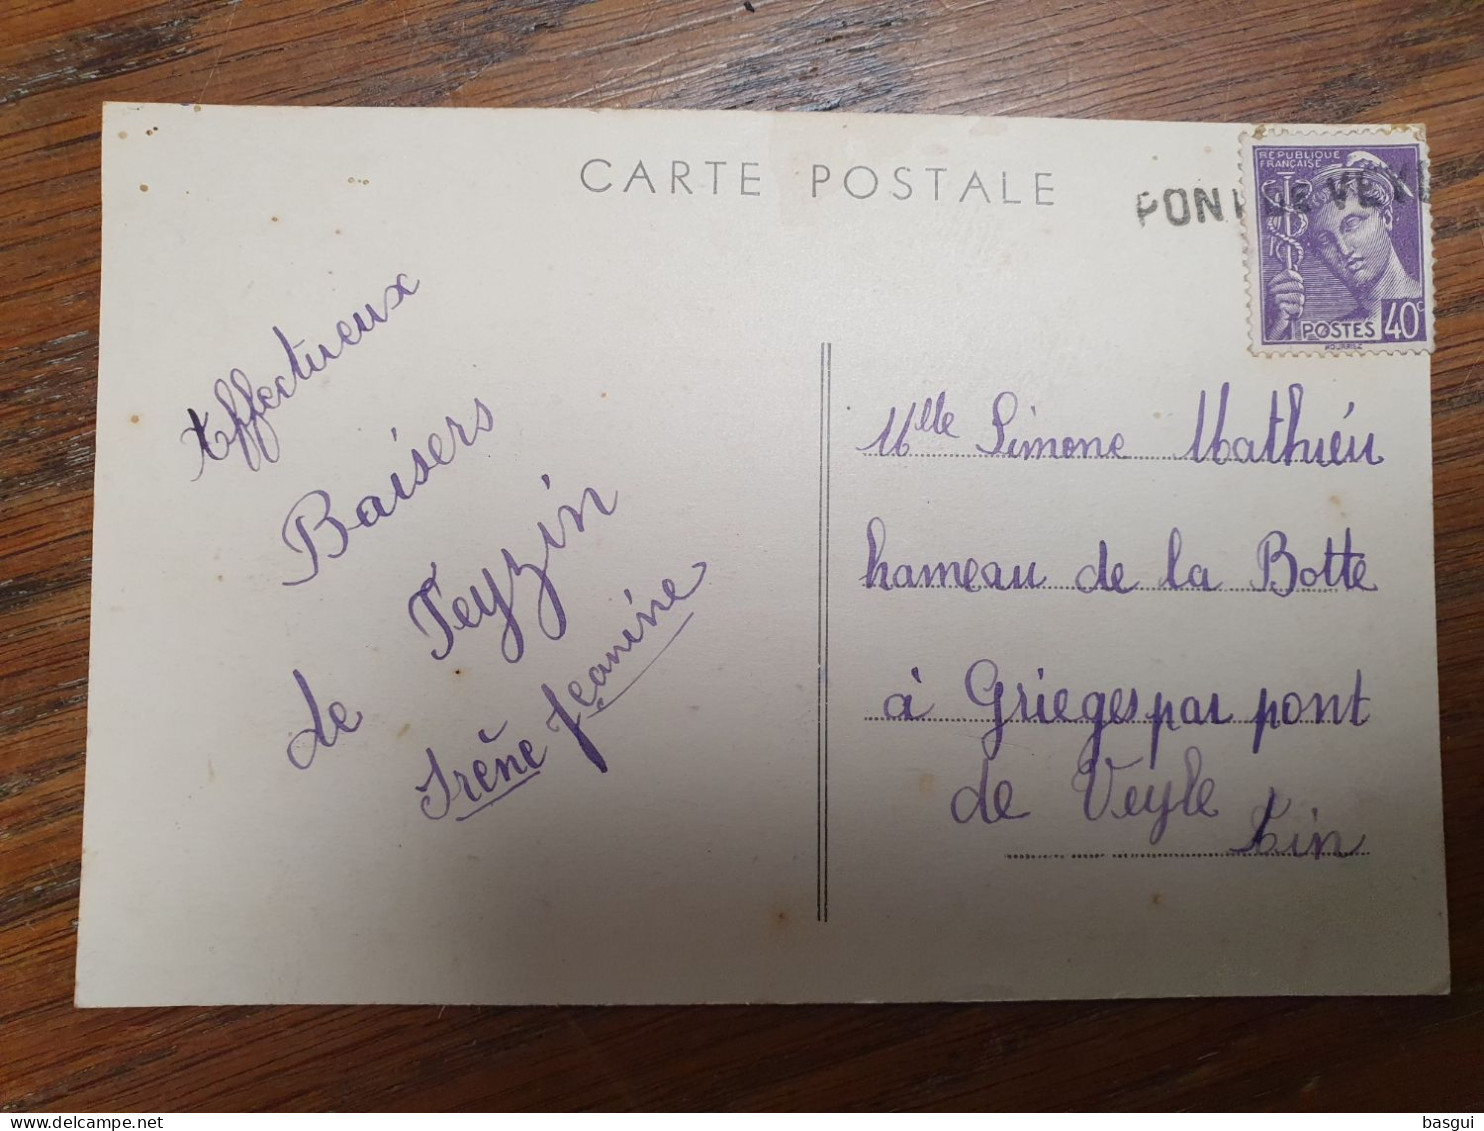 CARTE POSTALE
PONT DE VEYL
RÉPUBLIQUE
FRANÇAISE
POSTES 40c
Affectueux
Baisers
de Feyzin
Irène Jeanine
Mlle Simone Mathieu
hameau de la Botte
à Grièges par pont
de Veyle
Ain
basgui